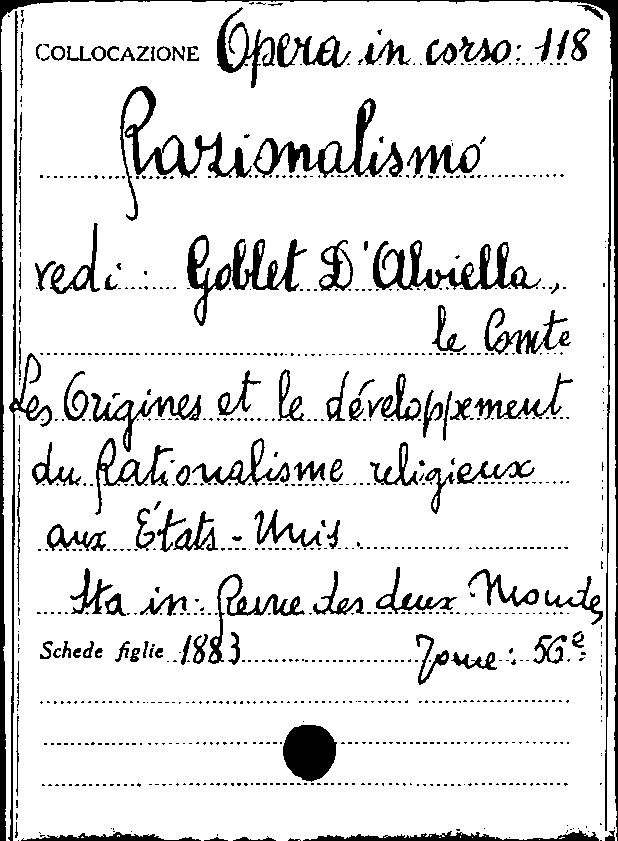 COLLOCAZIONE Opera in corso: 118
Razionalismo
vedi: Goblet D'Alviella,
le Comte
Les Origines et le développement
du Rationalisme religieux
aux États-Unis.
Sta in: Revue des deux Mondes
Schede figlie 1883 Tome: 56e: